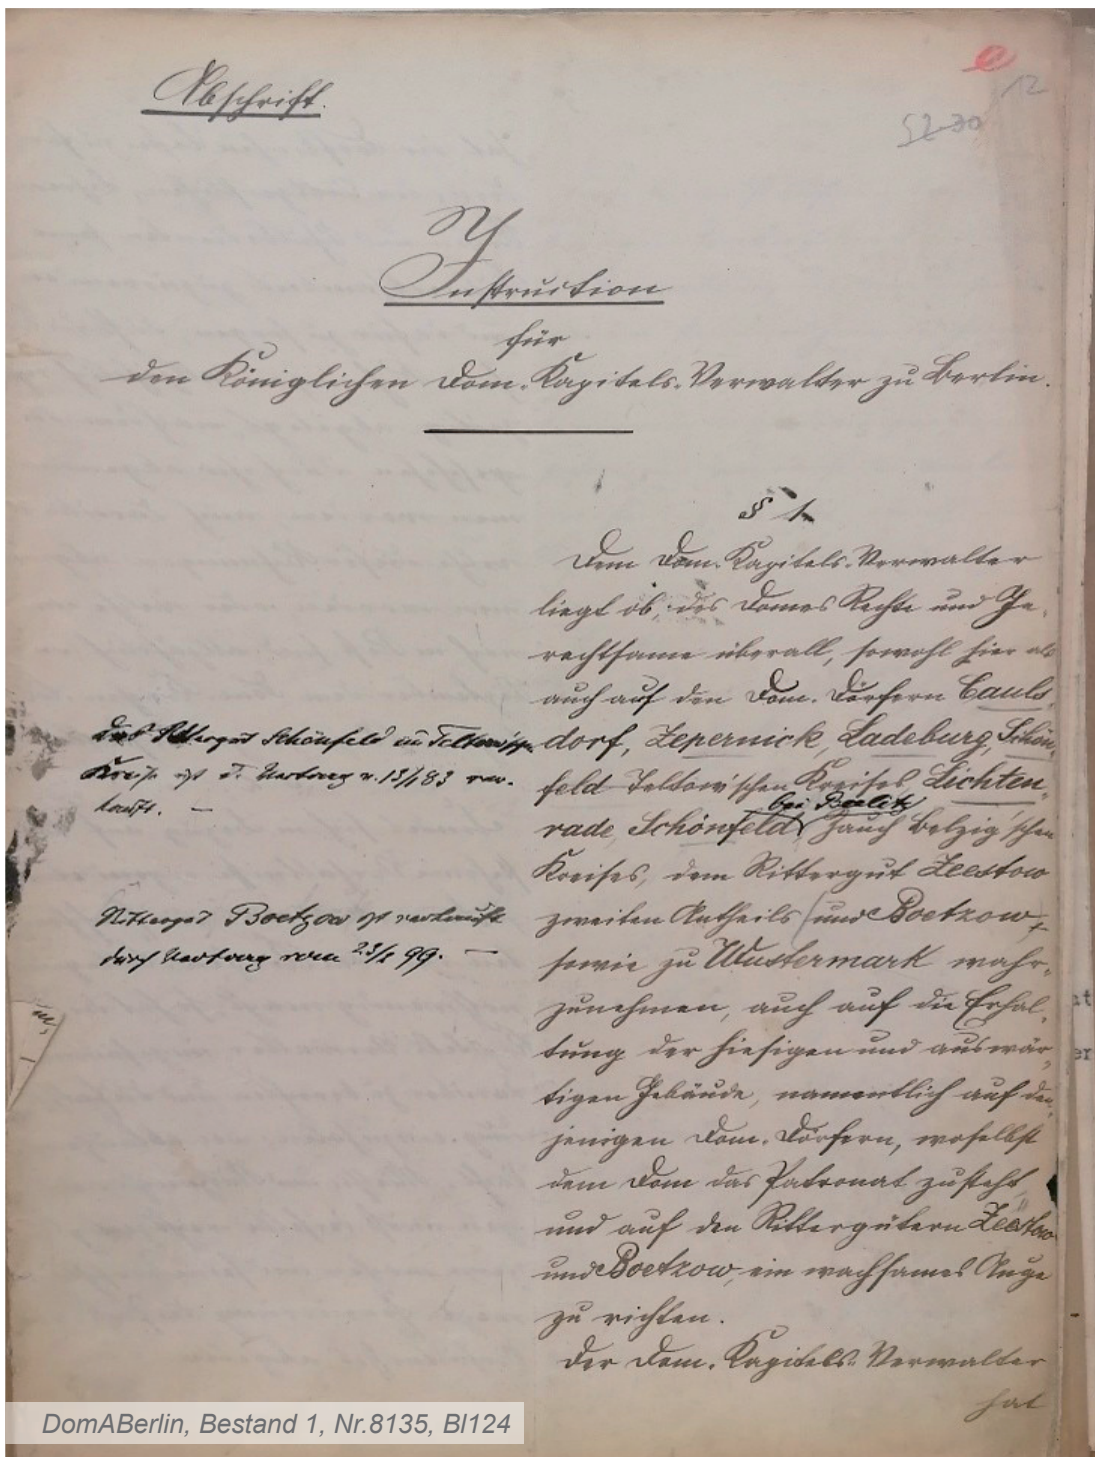 Abschrift.
12
52-30
Instruction
für
den Königlichen Dom-Kapitels-Verwalter zu Berlin.
§ 1
Dem Dom-Kapitels-Verwalter
liegt ob, des Domes Rechte und Ge-
rechtsame überall, sowohl hier als
auch auf den Dom-Dörfern Cauls-
dorf, Zepernick, Ladeburg, Schön-
feld Teltow'schen Kreises, Lichten-
bei Beelitz
rade, Schönfeld, Zauch Belzig'schen
Kreises, dem Rittergut Zeestow
zweiten Antheils (und Boetzow,
sowie zu Wustermark wahr-
zunehmen, auch auf die Erhal-
tung der hiesigen und auswär-
tigen Gebäude, namentlich auf den-
jenigen Dom-Dörfern, woselbst
dem Dom das Patronat zusteht,
und auf den Rittergütern Zeestow
und Boetzow, ein wachsames Auge
zu richten.
Der Dom-Kapitels-Verwalter
hat
Das Rittergut Schönfeld im Teltow'schen
Kreise ist d. Vertrag v. 13/1 83 ver-
kauft. —
Rittergut Boetzow ist verkauft
durch Vertrag vom 23/2 99. —
DomABerlin, Bestand 1, Nr.8135, Bl124